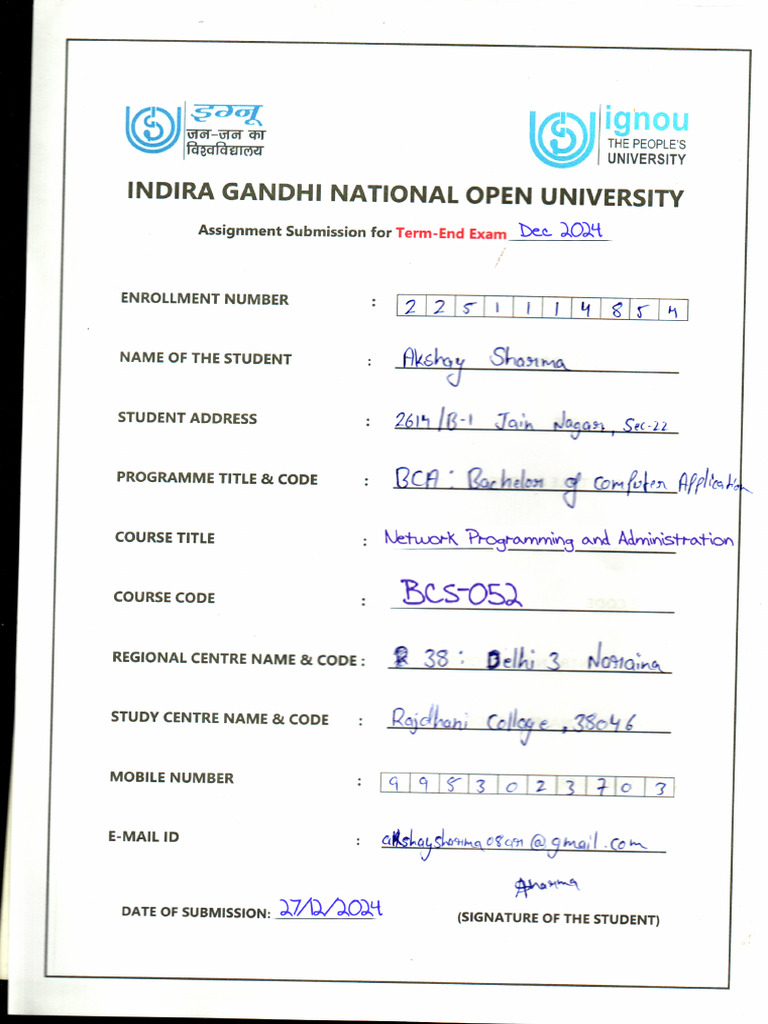 इग्नू
जन-जन का
विश्वविद्यालय
ignou
THE PEOPLE'S
UNIVERSITY
INDIRA GANDHI NATIONAL OPEN UNIVERSITY
Assignment Submission for Term-End Exam Dec 2024
ENROLLMENT NUMBER : 2251114854
NAME OF THE STUDENT : Akshay Sharma
STUDENT ADDRESS : 2614/B-1 Jain Nagar, Sec-22
PROGRAMME TITLE & CODE : BCA : Bachelor of Computer Application
COURSE TITLE : Network Programming and Administration
COURSE CODE : BCS-052
REGIONAL CENTRE NAME & CODE : 38 : Delhi 3 Naraina
STUDY CENTRE NAME & CODE : Rajdhani College, 38046
MOBILE NUMBER : 9953023703
E-MAIL ID : @gmail.com
Sharma
DATE OF SUBMISSION: 27/12/2024 (SIGNATURE OF THE STUDENT)